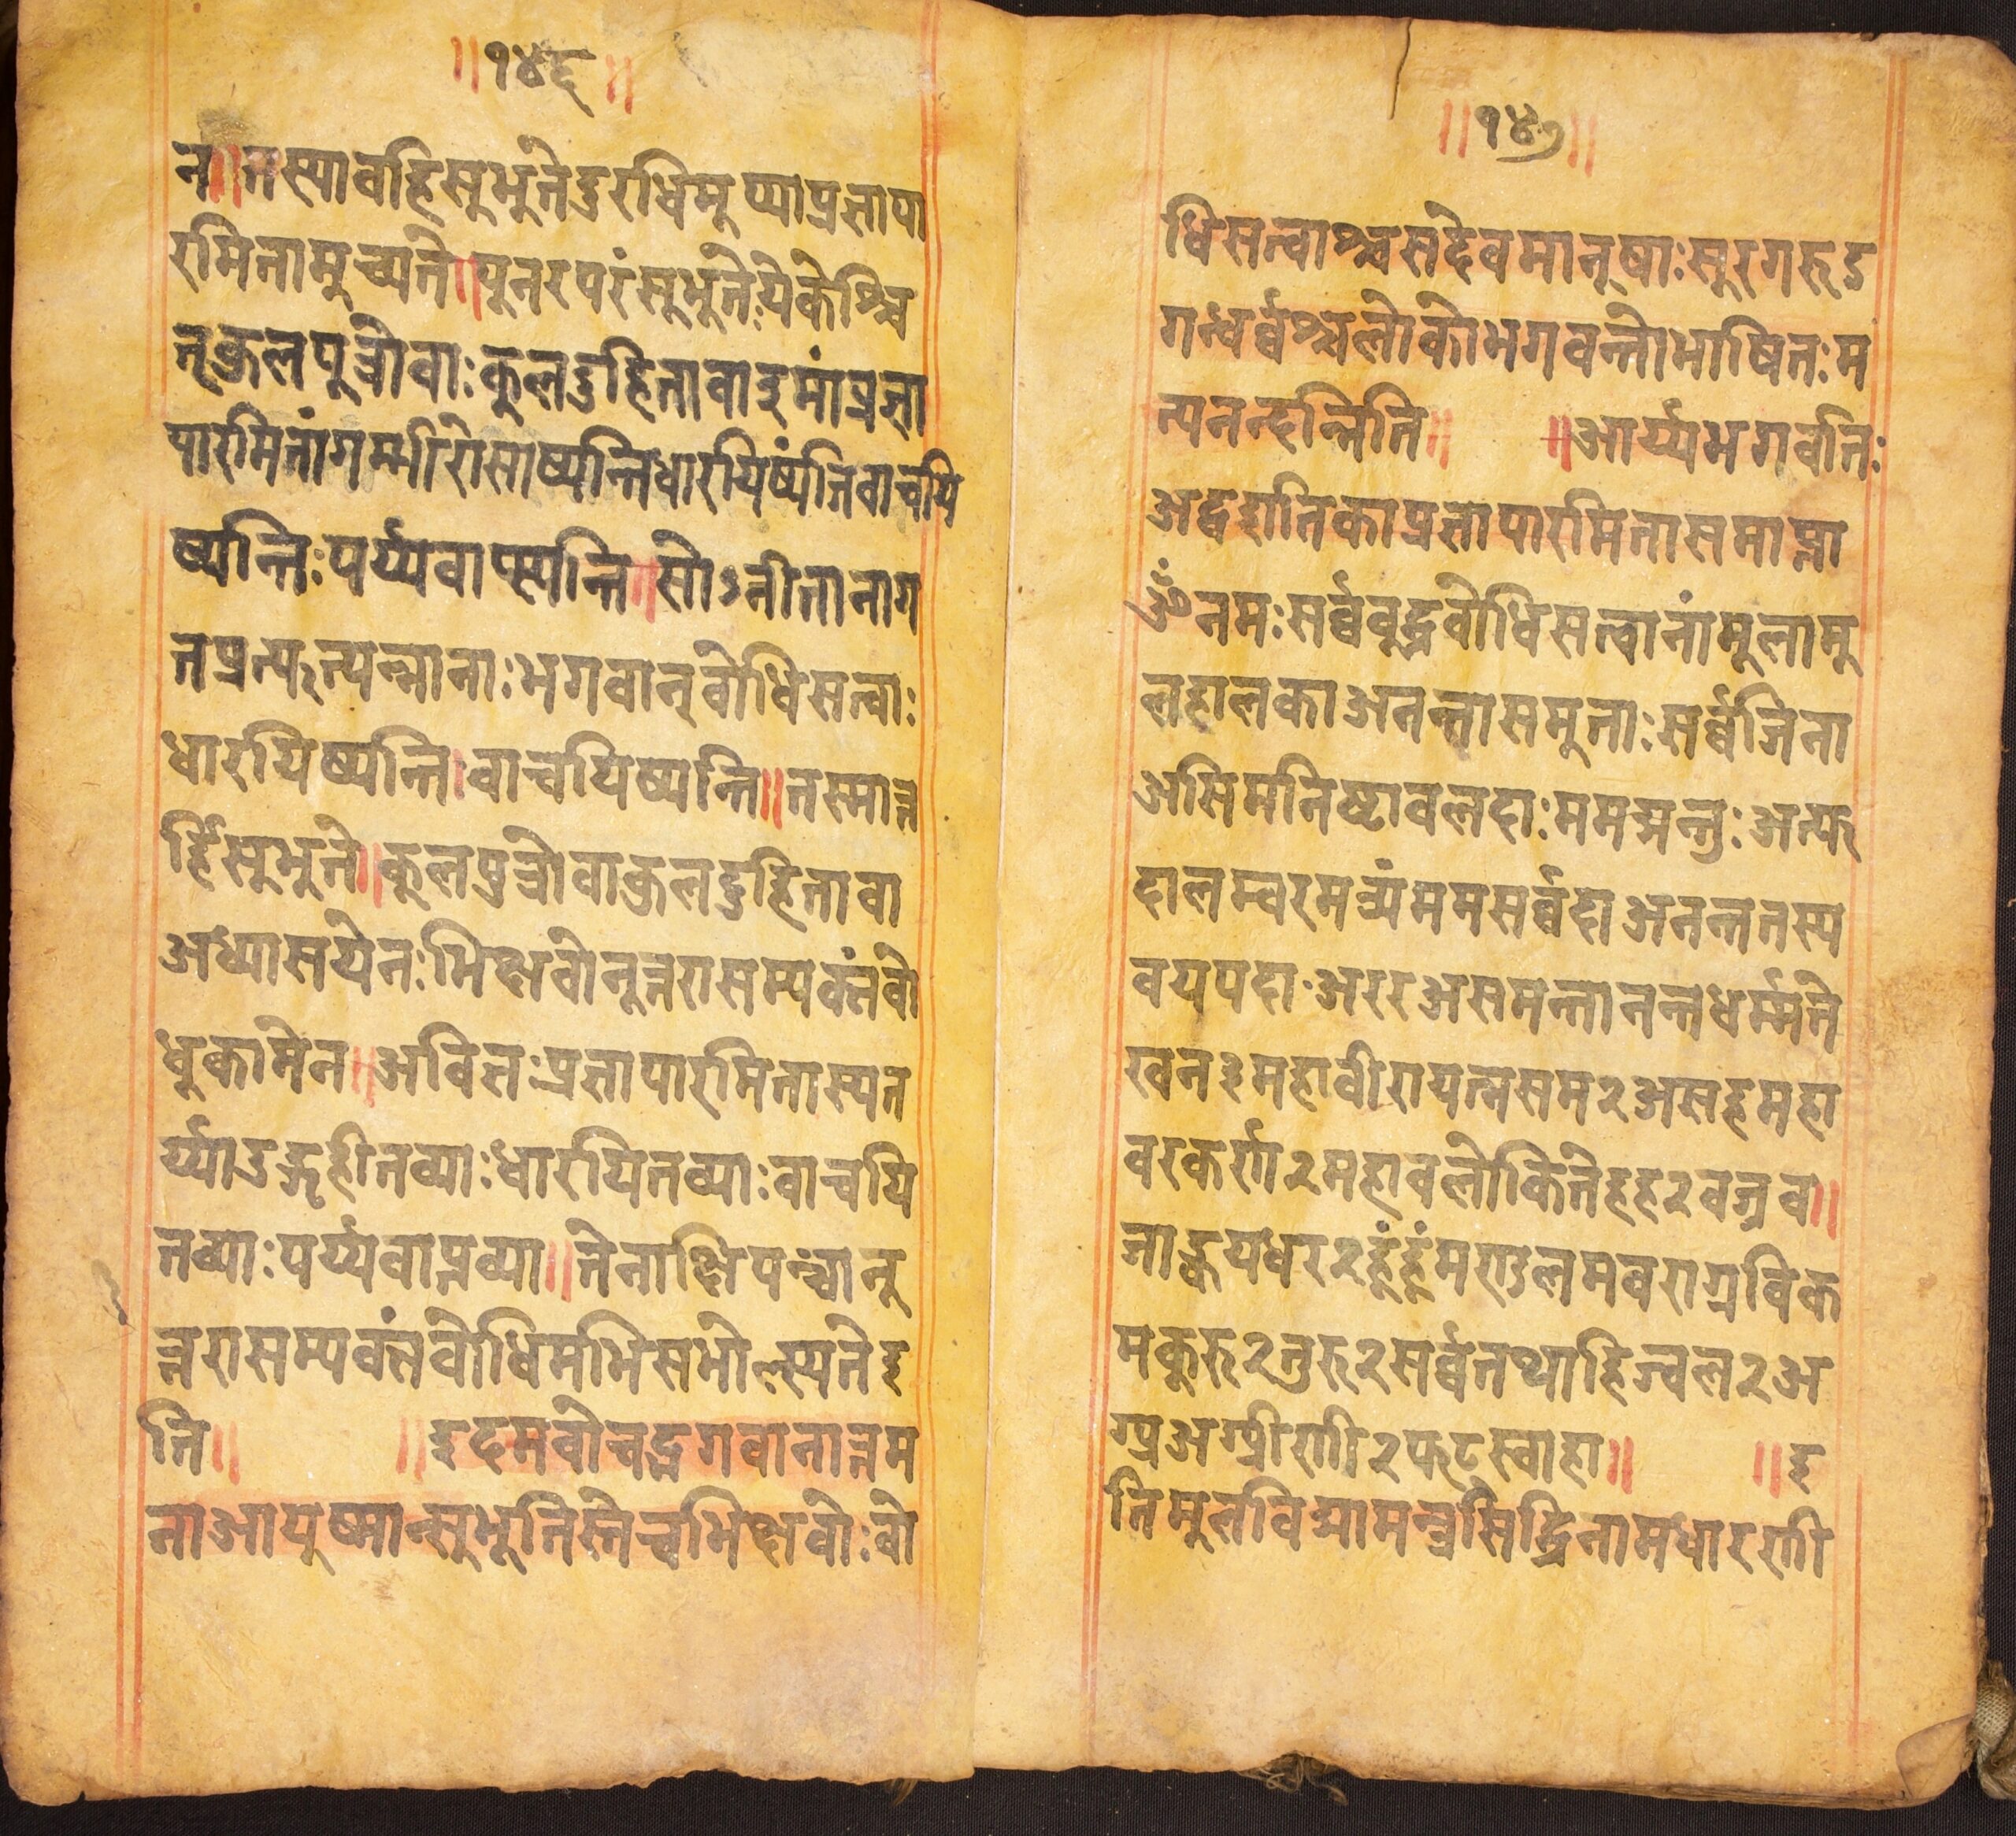 ॥१४६॥
न॥तस्यावहिसुभुतेदुरधिमूप्याप्रज्ञापा
रमितामुच्यते॥पुनरपरंसुभुते:येकेश्चि
त्कुलपुत्रोवाःकुलदुहितावाइमांप्रज्ञा
पारमितांगम्भीरोसाष्यन्तिधारयिष्यंतिवाचयि
ष्यन्तिःपर्य्यवाप्स्यन्ति॥सोऽतीतानाग
तप्रत्युत्पन्नानाःभगवान्वोधिसत्वाः
धारयिष्यन्ति।वाचयिष्यन्ति॥तस्मात्त
र्हिसुभुते॥कुलपुत्रोवाकुलदुहितावा
अध्यासयेनःभिक्षवोनूत्तरासम्यक्संवो
धुकामेन॥अवित्तःप्रज्ञापारमितास्यत
र्य्याउङ्गृहीतव्याःधारयितव्याःवाचयि
तव्योःपर्य्यवाप्तव्या॥तेनाक्षिपन्चानू
त्तरासम्यक्संवोधिमभिसभोत्स्यतेइ
ति॥ ॥इदमवोचद्भगवानात्तम
नाआयुष्मान्सुभूतिस्तेचभिक्षवोःवो
॥१४७॥
धिसत्वाश्चसदेवमानुषाःसुरगरूड
गन्धर्व्वश्चलोकोभगवन्तोभाषितःम
त्यनन्दन्निति॥ ॥आर्य्यभगवतिः
अद्वशतिकाप्रज्ञापारमितासमाप्ता
ॐनमःसर्व्ववुद्धवोधिसत्वानांमुलामु
लहालकाअनन्तासमुताःसर्व्वजिना
असिमनिष्टावलदाःममद्मन्तुःअत्फ
दालम्वरमत्र्यंममसर्व्वदाअनन्ततस्य
वयपदा·अररअसमन्तानन्तधर्म्मते
खन३महावीरायत्नसम२असहमहा
वरकर्ण२महावलोकितेहह२वज्रव॥
ज्राद्वयधर२हूंहूंमराउलमवराग्रविक
मकुरु२तुरु२सर्व्वतथाहिज्वल२अ
ग्प्रअग्प्रीणी२फट्स्वाहा॥ ॥इ
तिमुलविद्यामन्त्रसिद्धिनामधारणी